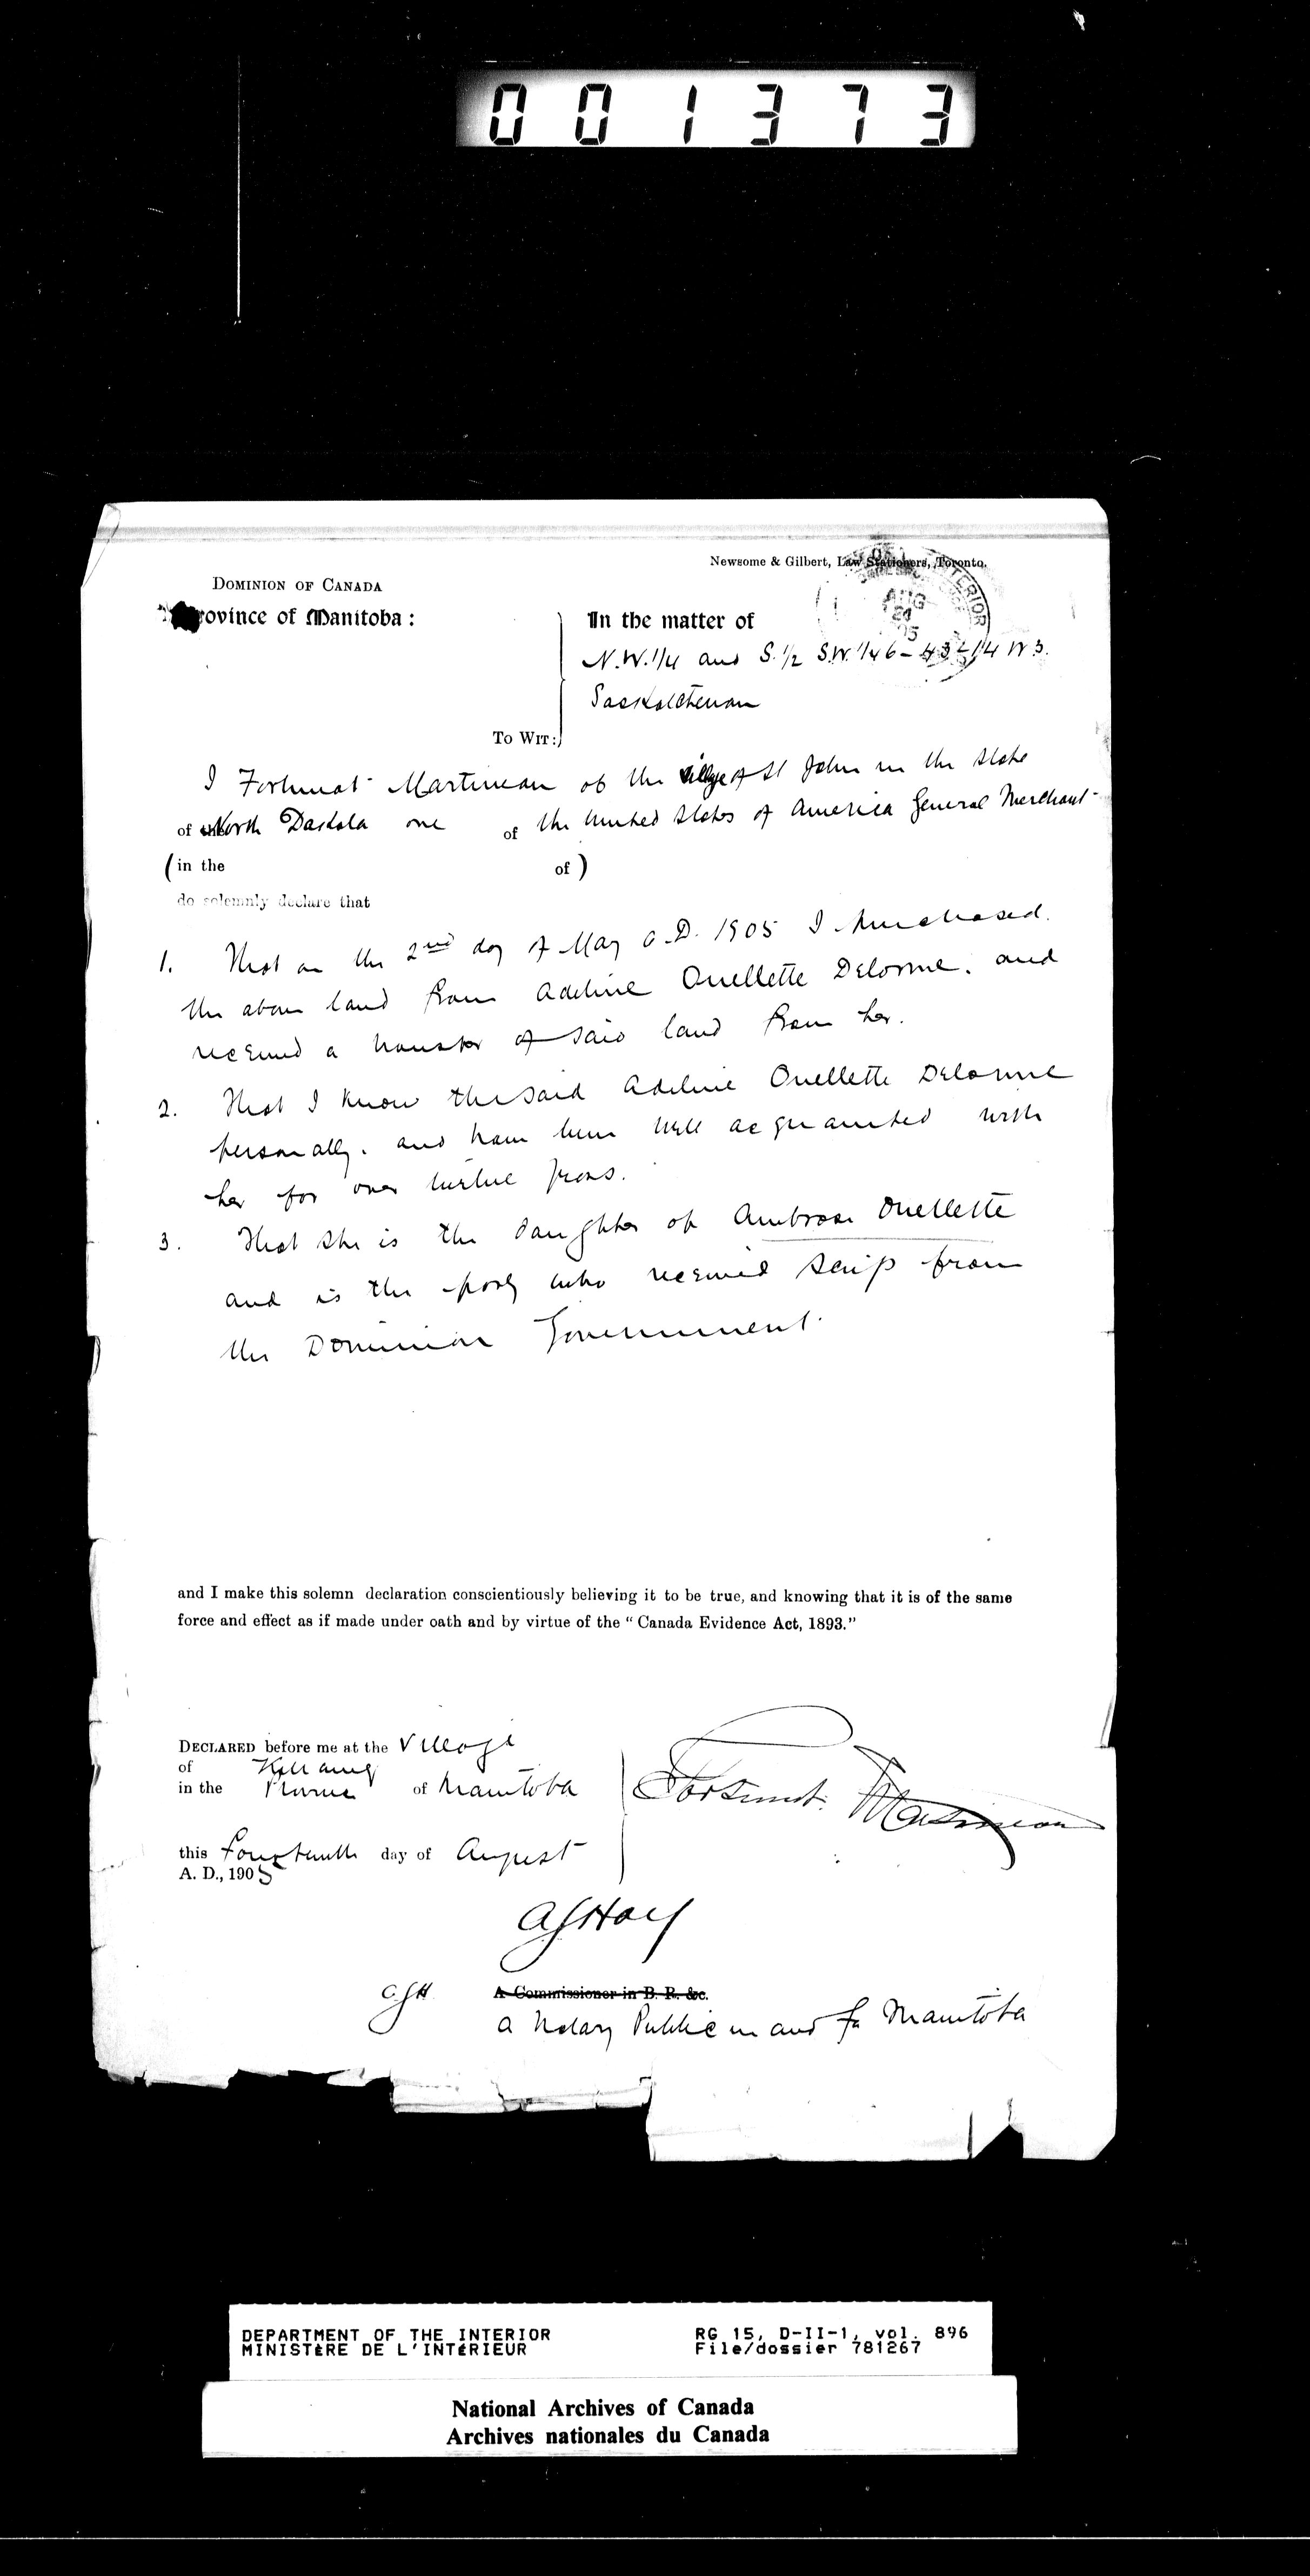 001373
Newsome & Gilbert, Law Stationers, Toronto.
DOMINION OF CANADA
Province of Manitoba:
In the matter of
INTERIOR
AUG
21
05
N.W. 1/4 and S. 1/2 S.W. 1/4 6 - 43 - 14 W 3.
Saskatchewan
TO WIT:
I Fortunat Martineau of the village of St John in the State
of North Dakota one of the United States of America General Merchant
(in the of )
do solemnly declare that
1. That on the 2nd day of May A.D. 1905 I purchased
the above land from Adeline Ouellette Delorme. and
received a transfer of said land from her.
2. That I know the said Adeline Ouellette Delorme
personally. and have been well acquainted with
her for over twelve years.
3. That she is the daughter of Ambrose Ouellette
and is the party who received scrip from
the Dominion Government.
and I make this solemn declaration conscientiously believing it to be true, and knowing that it is of the same
force and effect as if made under oath and by virtue of the "Canada Evidence Act, 1893."
DECLARED before me at the Village
of Killarney
in the Province of Manitoba
Fortunat Martineau
this Fourteenth day of August
A. D., 1905
A Hay
A Commissioner in B. R. &c.
a Notary Public in and for Manitoba
DEPARTMENT OF THE INTERIOR
MINISTÈRE DE L'INTÉRIEUR
RG 15, D-II-1, vol. 896
File/dossier 781267
National Archives of Canada
Archives nationales du Canada